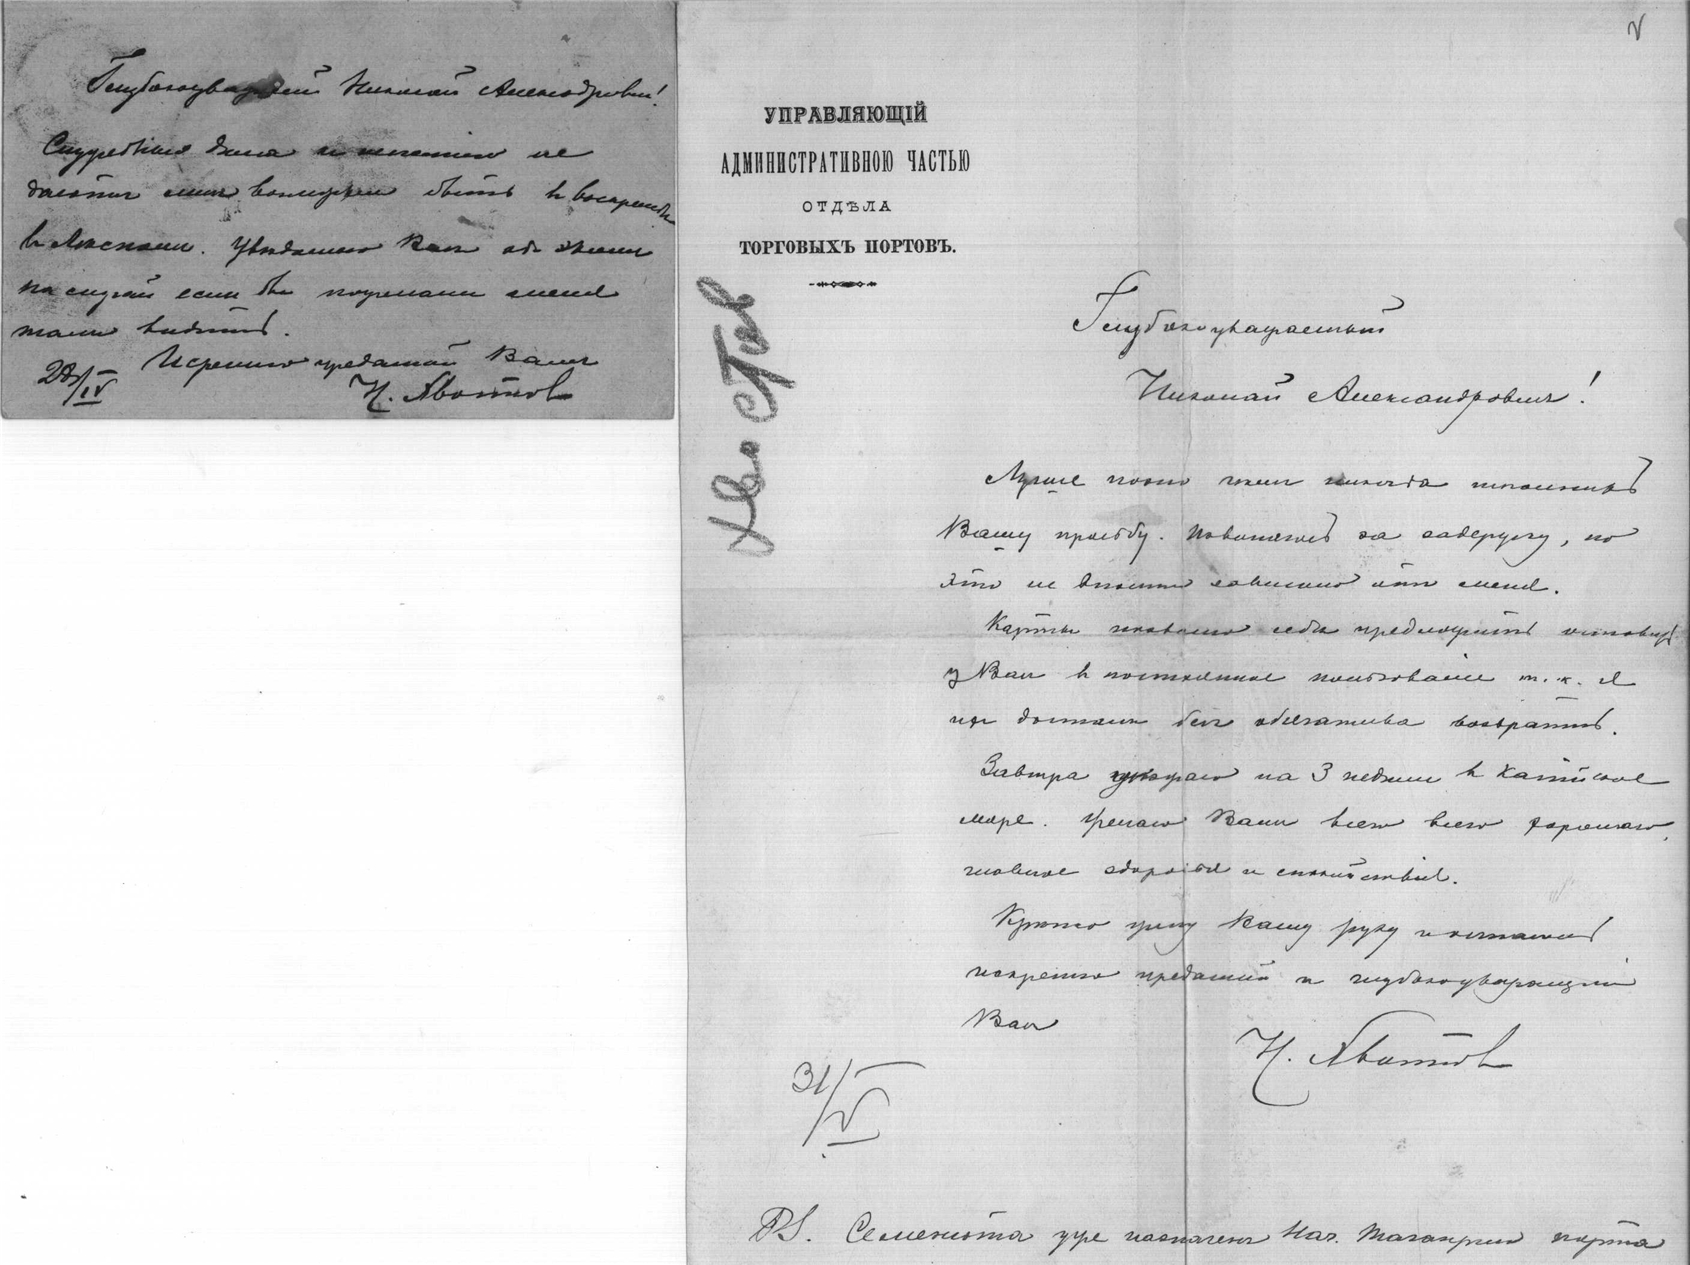 Глубокоуважаемый Николай Александрович!
Служебные дела к сожалению не
дают мне возможн быть в воскресенье
в . Уведомляю Вас об этом
на случай если бы пожелали меня
там видеть.
Искренно преданный Вамъ
28/IV Н. Авотков
V
УПРАВЛЯЮЩІЙ
АДМИНИСТРАТИВНОЮ ЧАСТЬЮ
ОТДѢЛА
ТОРГОВЫХЪ ПОРТОВЪ.
Глубокоуважаемый
Николай Александрович!
Лучше поздно чем никогда исполнить
Вашу просьбу. за задержку, но
это не зависило от меня.
Карты позволяю себе предложить оставить
у Вас в постоянное пользованіе т. к. я
их достал без обязательства возвратить.
Завтра уезжаю на 3 недели в Каспійское
море. Желаю Вам всего всего хорошаго,
главное здоровья и спокойствія.
Крепко жму Вашу руку и остаюсь
искренно преданный и глубокоуважающій
Вас
Н. Авотков
31/V
PS. уже назначен Нач. Таганрог порта